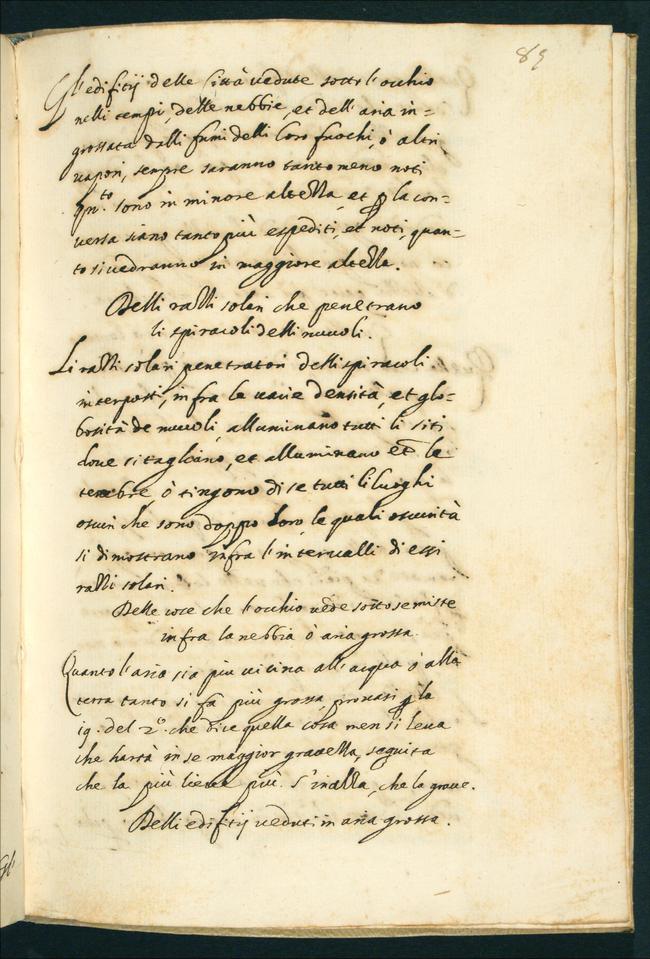 89
Gl'edifitij delle Città vedute sotto l'occhio
nelli tempi, delle nebbie, et dell'aria in=
grossata dalli fumi delli loro fuochi, ó altri
vapori, sempre saranno tanto meno noti
qnto sono in minore altezza, et p la con=
versa siano tanto più espediti, et noti, quan=
to si vedranno in maggiore altezza.
Delli razzi solari che penetrano
li spiracoli delli nuvoli.
Li razzi solari penetratori delli spiracoli
interposti, infra le varie densità, et glo=
bosità de nuvoli, alluminano tutti li siti
dove si tagliano, et alluminano etc le
tenebre, ò tingono di se tutti li luoghi
oscuri che sono doppo loro, le quali oscurità
si dimostrano infra l'intervalli di essi
razzi solari.
Delle cose che l'occhio vede sotto se miste
infra la nebbia ò aria grossa.
Quanto l'aria sia piu vicina all'acqua ó alla
terra tanto si fa più grossa, provasi p la
19. del 2º. che dice quella cosa men si leva
che harrà in se maggior gravezza, seguita
che la più lieve più s'inalza, che la grave.
Delli edifitij veduti in aria grossa.